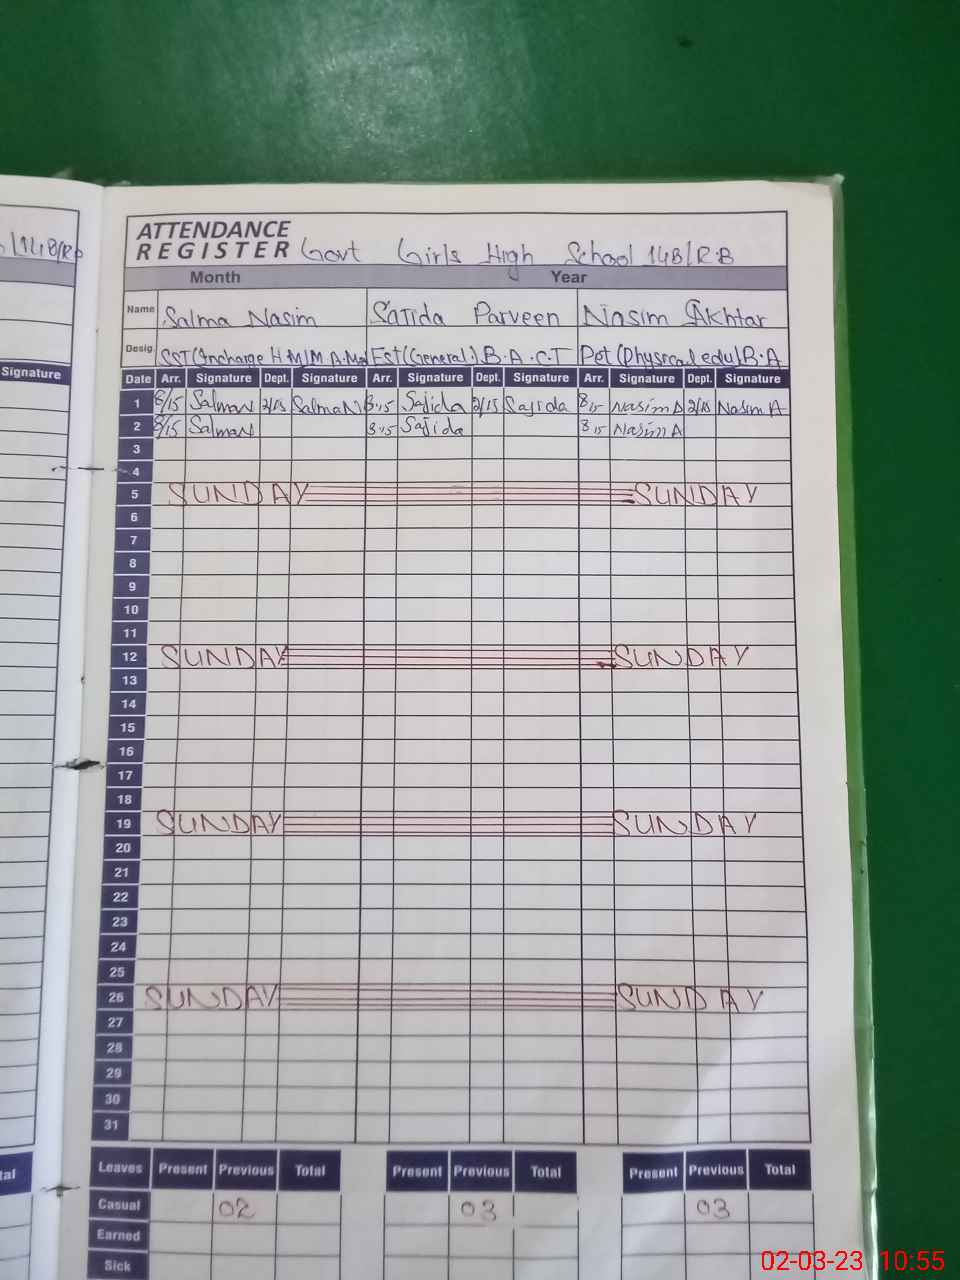 ATTENDANCE
REGISTER Govt Girls High School 148/R.B
Month Year
Name Salma Nasim Sajida Parveen Nasim Akhtar
Desig. SST (Incharge H.M) M.A.M Est (General) B.A.C.T Pet (Physical edu) B.A
Signature
Date Arr. Signature Dept. Signature Arr. Signature Dept. Signature Arr. Signature Dept. Signature
1 8/15 SalmaN 2/15 SalmaN 8:15 Sajida 2/15 Sajida 8:15 Nasim A 2/15 Nasim A
2 8/15 SalmaN 8:15 Sajida 8:15 Nasim A
3
4
5 SUNDAY SUNDAY
6
7
8
9
10
11
12 SUNDAY SUNDAY
13
14
15
16
17
18
19 SUNDAY SUNDAY
20
21
22
23
24
25
26 SUNDAY SUNDAY
27
28
29
30
31
Leaves Present Previous Total Present Previous Total Present Previous Total
Casual 02 03 03
Earned
Sick
02-03-23 10:55